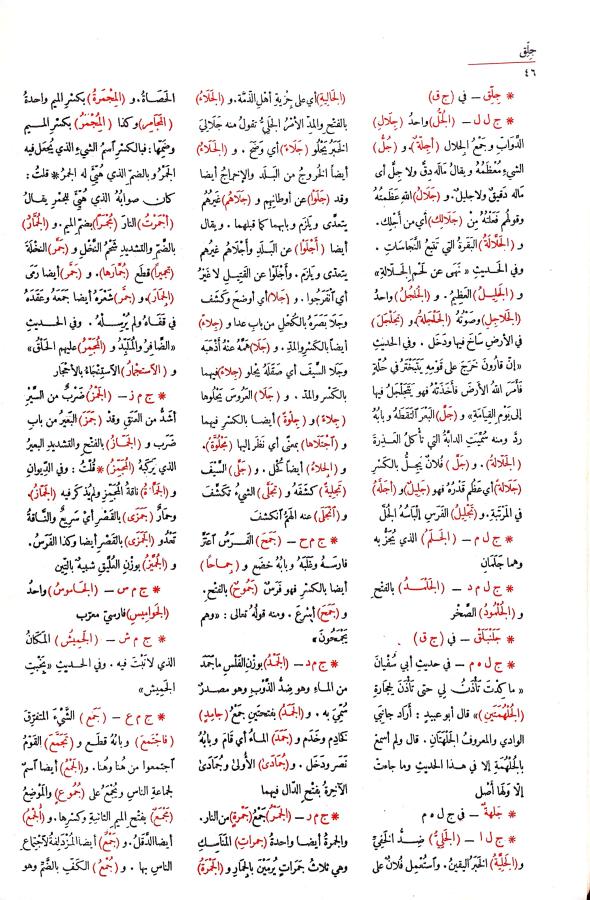 جلّق
٤٦
* جِلّق – في (ج ق)
* ج ل ل – (الجُلُّ) واحدُ (جِلَالِ)
الدَّوَابّ وجَمْعُ الجِلال (أجِلَّةٌ). و (جُلُّ)
الشيء مُعْظَمُهُ ويقال مالَه دِقّ ولا جِلّ أي
مالَه دَقيق ولا جَليل. و (جَلَالُ) الله عَظَمَتُه
وقولهم فَعَلْتُه مِنْ (جَلَالِك) أي من أَجْلِك.
و (الجَلَّالَةُ) البَقَرةُ التي تتبع النَّجاسَاتِ.
وفي الحديث «نَهَى عن لَحْمِ الجَلّالة»
و (الجَلِيلُ) العظيمُ. و (الجُلْجُلُ) واحدُ
(الجَلَاجِلِ) وصَوْتُهُ (الجَلْجَلَةُ). و (تَجَلْجَلَ)
في الأرض سَاخ فيها ودَخَل. وفي الحديث
«إنّ قَارُونَ خَرَج على قَوْمِه يَتَبَخْتَرُ في حُلَّةٍ
فأَمَرَ اللهُ الأرضَ فأخَذَتْهُ فهو يَتَجَلْجَلُ فيها
إلى يَوْمِ القِيَامةِ» و (جَلَّ) البَعَر التَقَطَهُ وبابُهُ
ردَّ ومنه سُمِّيَتِ الدابَّةُ التي تأكلُ العَذِرةَ
(الجَلَّالَةَ). و (جَلّ) فُلَانٌ يَجِلُّ بالكَسْر
(جَلَالةً) أي عَظُم قَدْرُه فهو (جَلِيلٌ) و (أَجَلَّهُ)
في المَرْتَبة. و (تَجْلِيلُ) الفَرَس إلباسُهُ الجُلّ
* ج ل م – (الجَلَمُ) الذي يُجَزُّ به
وهما جَلَمَانِ
* ج ل م د – (الجَلْمَدُ) بالفتح
و (الجُلْمُودُ) الصَّخْر
* جُلَنْبَلَق – في (ج ق)
* ج ل ه م – في حديث أبي سُفْيانَ
«ما كدْتَ تَأْذَنُ لي حتى تَأْذَنَ لحجارة
(الجُلْهُمَتَيْنِ)» قال أبو عبيد: أراد جانِبَيِ
الوادي والمعروف الجَلْهَتَانِ. قال ولم أسمعْ
بالجُلْهُمَة إلا في هذا الحديثِ وما جاءت
إلّا ولَهَا أصْل
* جَلْهَةٌ – في ج ل ه م
* ج ل ا – (الجَلِيُّ) ضِدُّ الخَفِيّ
و (الجَلِيَّةُ) الخَبَرُ اليَقِينُ. واسْتُعْمِل فُلانٌ على
(الجَالِيَةِ) أي على جِزْيةِ أهْلِ الذِّمَّة. و (الجَلَاءُ)
بالفتح والمدّ الأمْرُ الجَلِيُّ تقول منه جَلَا لِيَ
الخَبَرُ يَجْلُو (جَلَاءً) أي وَضَح. و (الجَلَاءُ)
أيضا الخُروجُ من البَلَدِ والإخراجُ أيضا
وقد (جَلَوْا) عن أوطانِهِم و (جَلَاهُمْ) غَيْرُهُمْ
يتعدّى ويَلْزَم وبابُهما كما قبلهما. ويقال
أيضا (أَجْلَوْا) عن البَلَدِ وأَجْلَاهُم غيرُهم
يتعدى ويَلْزَم. وأجْلَوْا عن القَتِيل لا غَيْرُ
أي انْفَرَجُوا. و (جَلَا) أي أوضَحَ وكَشَف
وجَلَا بَصَرَهُ بالكُحْلِ من باب عدا و (جِلاءً)
أيضا بالكسر والمدّ. و (جَلَا) هَمَّهُ عنهُ أذهَبَهُ
وجَلَا السَّيفَ أي صقَلَهُ يَجْلُو (جِلاءً) فيهما
بالكَسْر والمدّ. و (جَلَا) العَرُوسَ يَجْلُوها
(جِلاءً) و (جِلْوَةً) أيضا بالكسر فيهما
و (اجْتَلاها) بمعنًى أي نَظَر إليها (مَجْلُوَّةً).
و (الجِلَاءُ) أيضا كُحْل. و (جَلَّى) السَّيْفَ
(تَجْلِيَةً) كَشَفَهُ و (تَجَلَّى) الشيءُ تكَشَّفَ
و (انْجَلَى) عنه الهَمُّ انكَشَفَ
* ج م ح – (جَمَحَ) الفَرَسُ اعْتَزَّ
فارسَهُ وغَلَبَهُ وبابُه خضَع و (جِمَاحًا)
أيضا بالكسر فهو فَرَسٌ (جَمُوحٌ) بالفتح.
و (جَمَحَ) أسْرَعَ. ومنه قولُه تعالى: «وهم
يَجْمَحُونَ»
* ج م د – (الجَمْدُ) بوزن الفَلْس ماجَمَدَ
من الماءِ وهو ضِدُّ الذَّوْبِ وهو مصدرٌ
سُمِّيَ به. و (الجَمَدُ) بفتحتين جَمْعُ (جامِدٍ)
كخادِمٍ وخَدَم و (جَمَدَ) الماءُ أي قَامَ وبابُهُ
نَصَر ودَخَل. و (جُمَادَى) الأُولَى وجُمادَى
الآخِرةُ بفتح الدال فيهما
* ج م ر – (الجَمْرُ) جَمْعُ (جَمْرةٍ) من النار.
والجمرةُ أيضا واحدةُ (جَمَراتِ) المَنَاسِكِ
وهي ثلاثُ جَمَراتٍ يُرْمَيْنَ بالجِمارِ و (الجَمْرَةُ)
الحَصَاةُ. و (المِجْمَرَةُ) بكسر الميم واحدةُ
(المَجَامِرِ) وكذا (المُجْمَرُ) بكسر الميم
وضَمِّها: فبالكسرِ اسمُ الشيءِ الذي يُجعل فيه
الجَمْرُ وبالضم الذي هُيِّئَ له الجمرُ * قلتُ:
كان صوابُهُ الذي هُيِّئَ للجمرِ يقال
(أجْمَرْتُ) النار (مُجْمَرًا) بضم الميم. و (الجُمَّارُ)
بالضّمّ والتشديد شَحْمُ النَّخْلِ و (جَمَّرَ) النخْلَةَ
(تَجْمِيرًا) قطَع (جُمَّارَها). و (جَمَّرَ) أيضا رَمَى
(الجِمَارَ). و (جَمَّرَ) شَعْرَهُ أيضا جَمَعهُ وعَقَدَهُ
في قَفَاهُ ولم يُرْسِلْهُ. وفي الحديث
«الضَّافِرُ والمُلَبِّدُ و (المُجَمِّرُ) عليهم الحَلْقُ»
و (الاسْتِجْمَارُ) الاستِنْجاءُ بالأَحْجارِ
* ج م ز – (الجَمْزُ) ضَرْبٌ من السَّيْرِ
أشدُّ من العَنَقِ وقد (جَمَزَ) البَعيرُ من باب
ضَرَب و (الجَمَّازُ) بالفتح والتشديد البعيرُ
الذي يَركَبُهُ (المُجَمِّزُ) * قُلْتُ: وفي الدِّيوانِ
و (الجَمَّازَةُ) ناقةُ المُجَمِّزِ ولم يَذكر فيه (الجَمَّازَ)
وحِمَارٌ (جَمَزَى) بالقَصْر أيْ سَريعٌ والنَّاقةُ
تَعْدُو (الجَمَزَى) بالقصرِ أيضا وكذا الفَرَسُ.
و (الجُمَّيْزُ) بوَزْنِ العُلَّيْقِ شَبِيهٌ بالتِّين
* ج م س – (الجَامُوسُ) واحدُ
(الجَواميسِ) فارسيٌّ معرّب
* ج م ش – (الجَمِيشُ) المَكَانُ
الذي لا نَبْتَ فيه. وفي الحديث «بِخَبْتِ
الجَمِيش»
* ج م ع – (جَمَع) الشَّيْءَ المتفرّقَ
(فاجتَمَعَ) وبابُهُ قطَع و (تَجَمَّعَ) القَوْمُ
اجتمعوا من هُنا وهُنا. و (الجَمْعُ) أيضا اسمٌ
لجماعةِ الناس ويُجْمَعُ على (جُمُوعٍ) والمَوْضِعُ
(مَجْمَعٌ) بفتح الميمِ الثانيةِ وكسرِها. و (الجَمْعُ)
أيضا الدَّقَلُ. و (جَمْعٌ) أيضا المُزْدَلِفةُ لاجتماع
الناس بها. و (جُمْعُ) الكفِّ بالضّمّ وهو